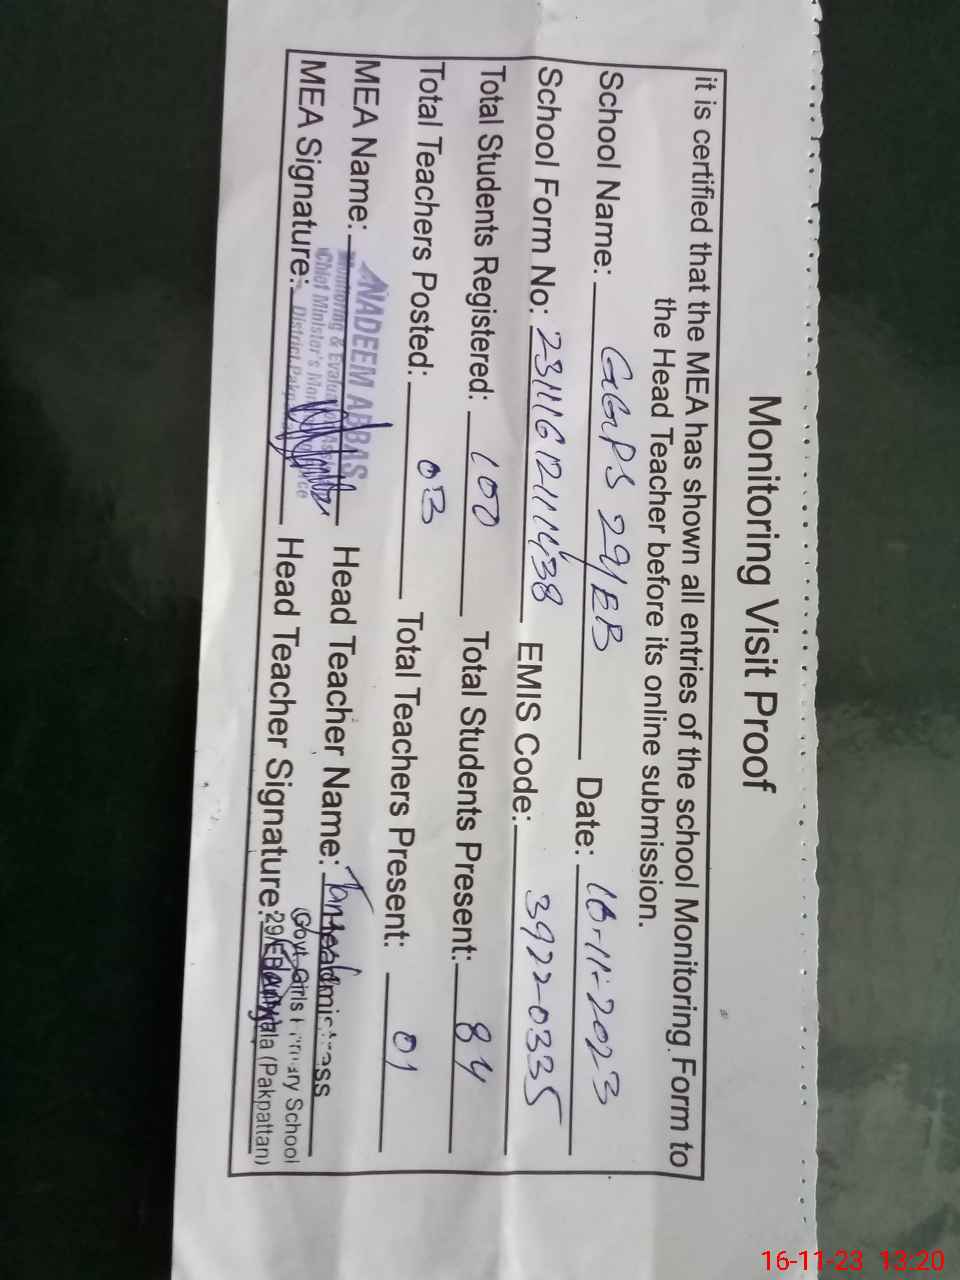 Monitoring Visit Proof
it is certified that the MEA has shown all entries of the school Monitoring Form to
the Head Teacher before its online submission.
School Name: GGPS 29/EB Date: 16-11-2023
School Form No: EMIS Code: 39220335
Total Students Registered: 100 Total Students Present: 84
Total Teachers Posted: 03 Total Teachers Present: 01
MEA Name: NADEEM ABBAS Head Teacher Name:
Monitoring & Chief Minister's
MEA Signature: District Head Teacher Signature:
Govt Girls School
29/EB (Pakpattan)
16-11-23 13:20